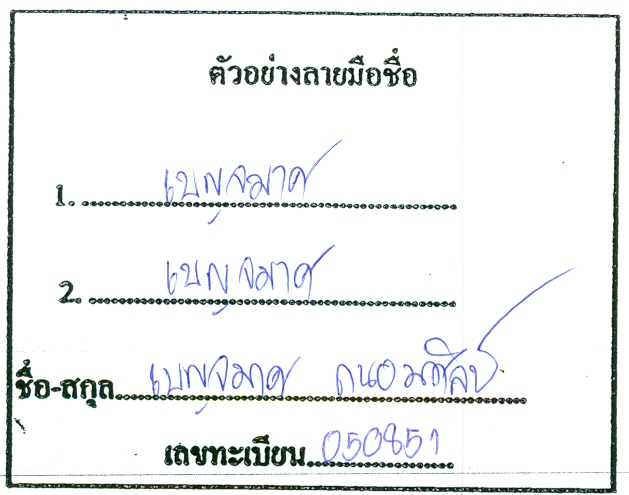 ตัวอย่างลายมือชื่อ
1. เบญจมาศ
2. เบญจมาศ
ชื่อ-สกุล เบญจมาศ ถนอมศิลป์
เลขทะเบียน 050851